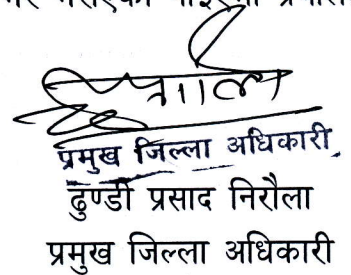 प्रमुख जिल्ला अधिकारी
ढुण्डी प्रसाद निरौला
प्रमुख जिल्ला अधिकारी